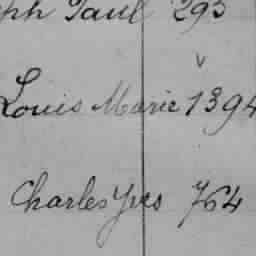 ph Paul 293
Louis Marie 1394
Charles Yves 764